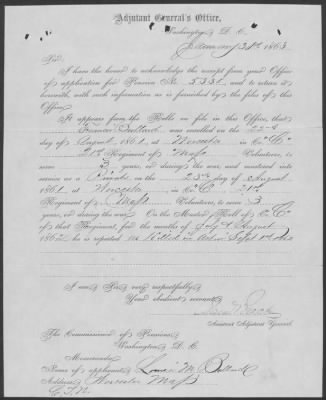 Adjutant General's Office,
Washington, D. C.
January 31st 1863.
Sir:
I have the honor to acknowledge the receipt from your Office
of application for Pension No. 5331, and to return it
herewith, with such information as is furnished by the files of this
Office.
It appears from the Rolls on file in this Office, that
Bullard was enrolled on the 22nd
day of August, 1861, at Worcester in Co. "C"
21st Regiment of Mass Volunteers, to serve
3 years, or during the war, and mustered into
service as a Private on the 23rd day of August
1861, at Worcester, in Co. "C" 21st
Regiment of Mass Volunteers, to serve 3
years, or during the war. On the Muster Roll of Co. "C"
of that Regiment, for the months of July & August
1862, he is reported Killed in action Sept 1st
I am Sir, very respectfully,
Your obedient servant,
Assistant Adjutant General.
The Commissioner of Pensions,
Washington, D. C.
Memoranda:
Name of applicant, M. Bullard
Address, Worcester Mass